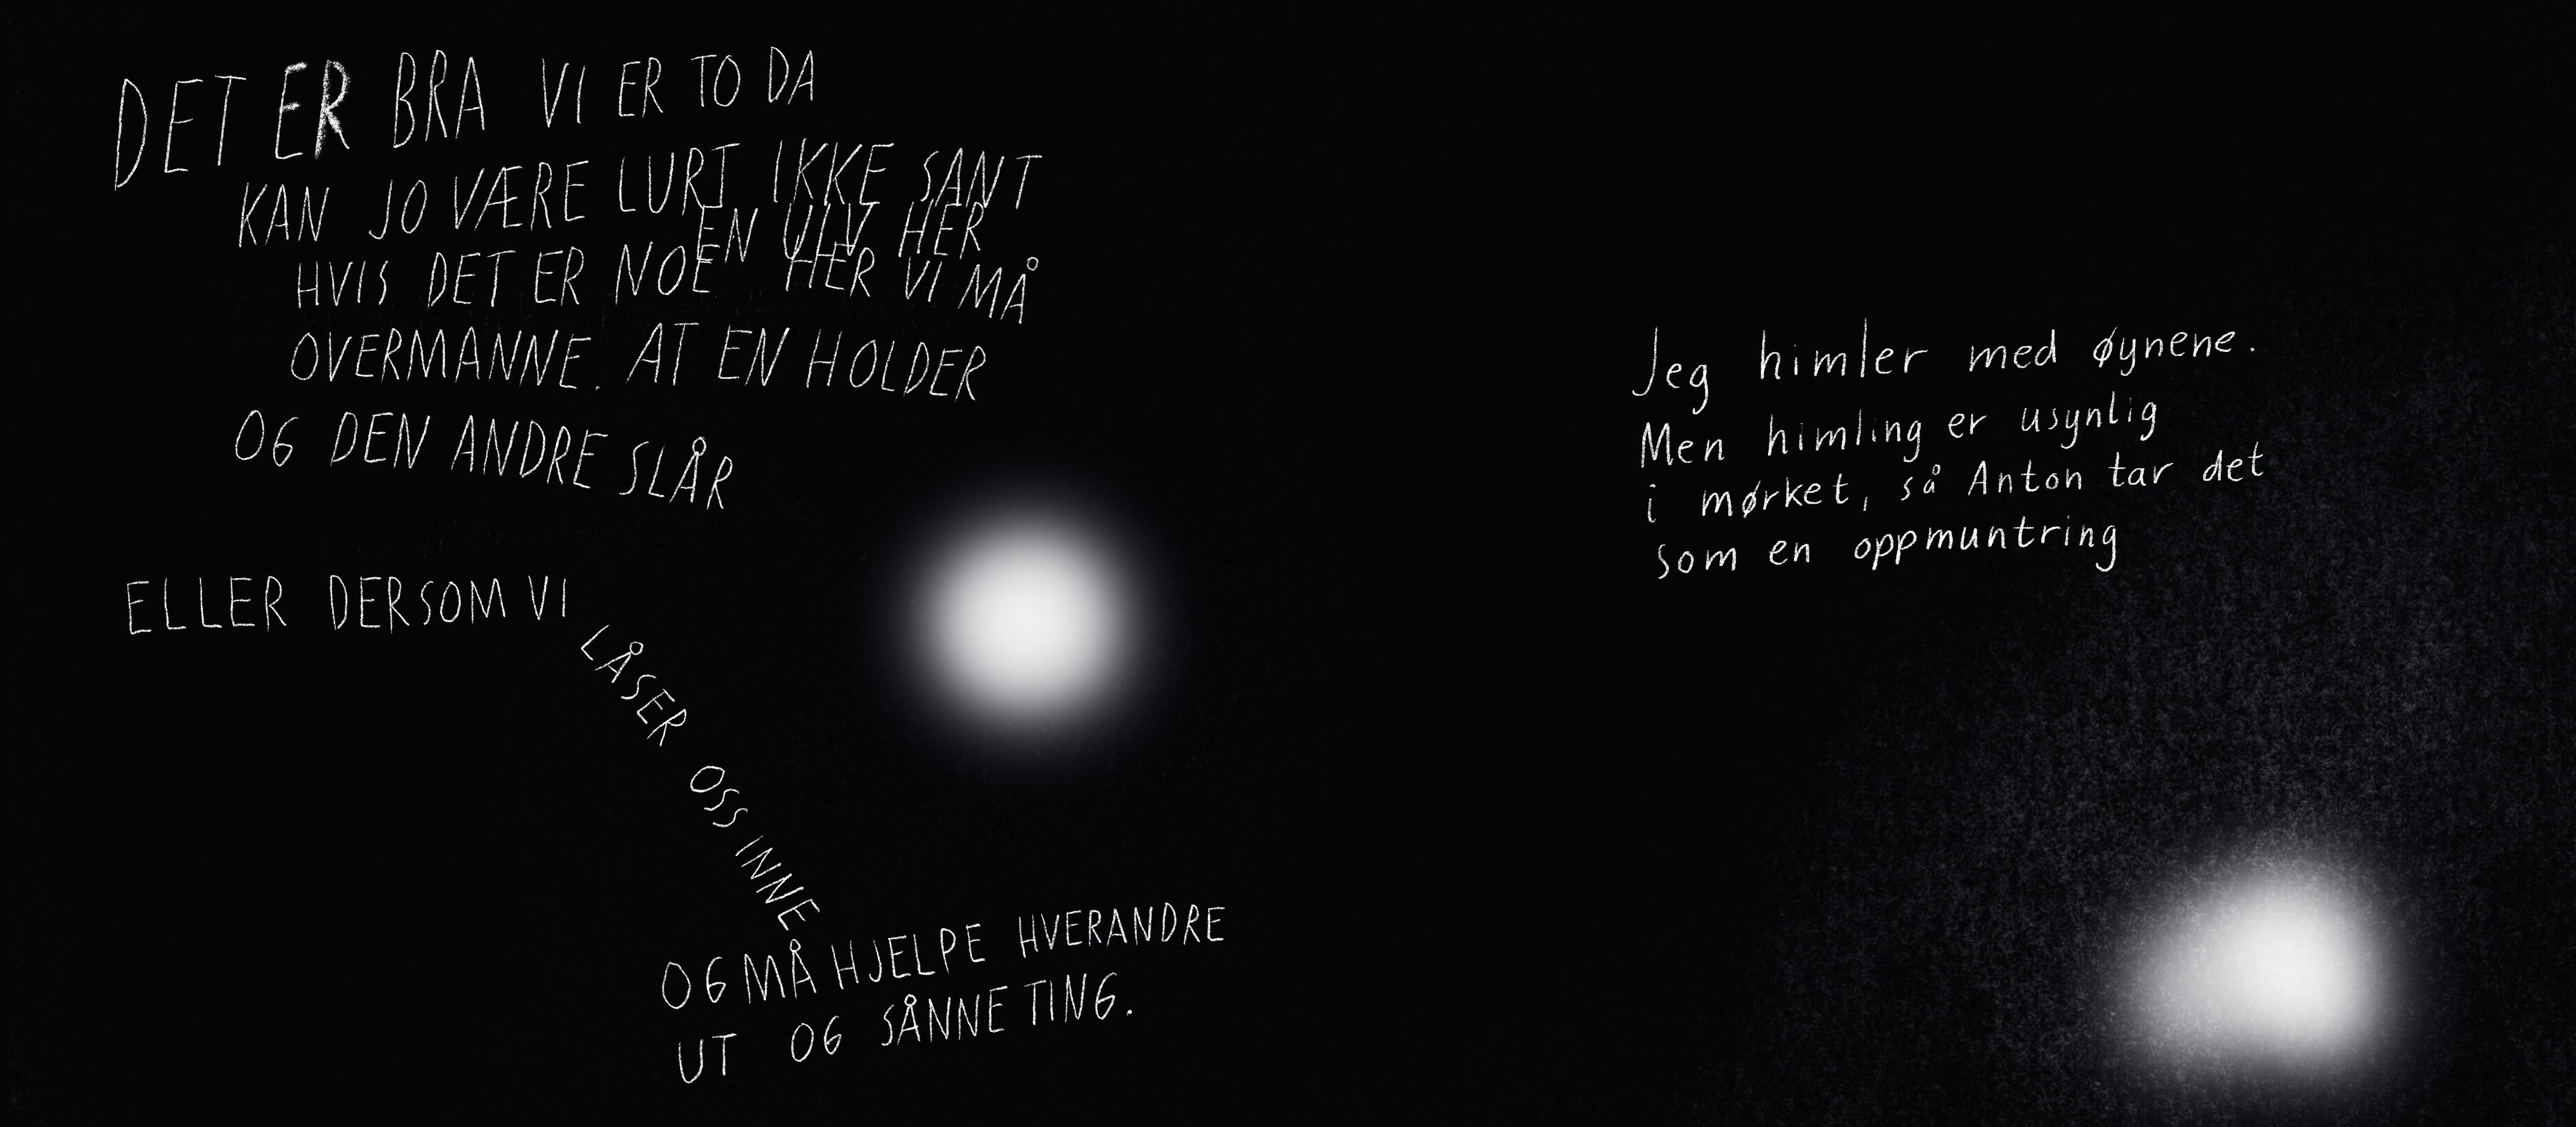 DET ER BRA VI ER TO DA
KAN JO VÆRE LURT IKKE SANT
EN ULV HER
HVIS DET ER NOE HER VI MÅ
OVERMANNE. AT EN HOLDER
OG DEN ANDRE SLÅR
ELLER DERSOM VI
LÅSER OSS INNE
OG MÅ HJELPE HVERANDRE
UT OG SÅNNE TING.
Jeg himler med øynene.
Men himling er usynlig
i mørket, så Anton tar det
som en oppmuntring